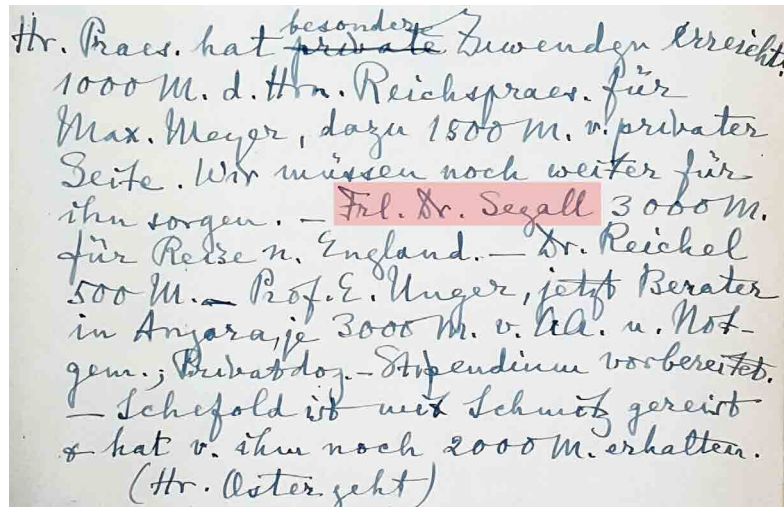 besondere
Hr. Praes. hat private Zuwendgn erreicht
1000 M. d. Hrn. Reichspraes. für
Max. Meyer, dazu 1500 M. v. privater
Seite. Wir müssen noch weiter für
ihn sorgen. — Frl. Dr. Segall 3000 M.
für Reise n. England. — Dr. Reichel
500 M. — Prof. E. Unger, jetzt Berater
in Angora, je 3000 M. v. AA. u. Not-
gem.; Privatdoz. - Stipendium vorbereitet.
— Schefold ist mit Schmitz gereist
& hat v. ihm noch 2000 M. erhalten.
(Hr. Oster geht)